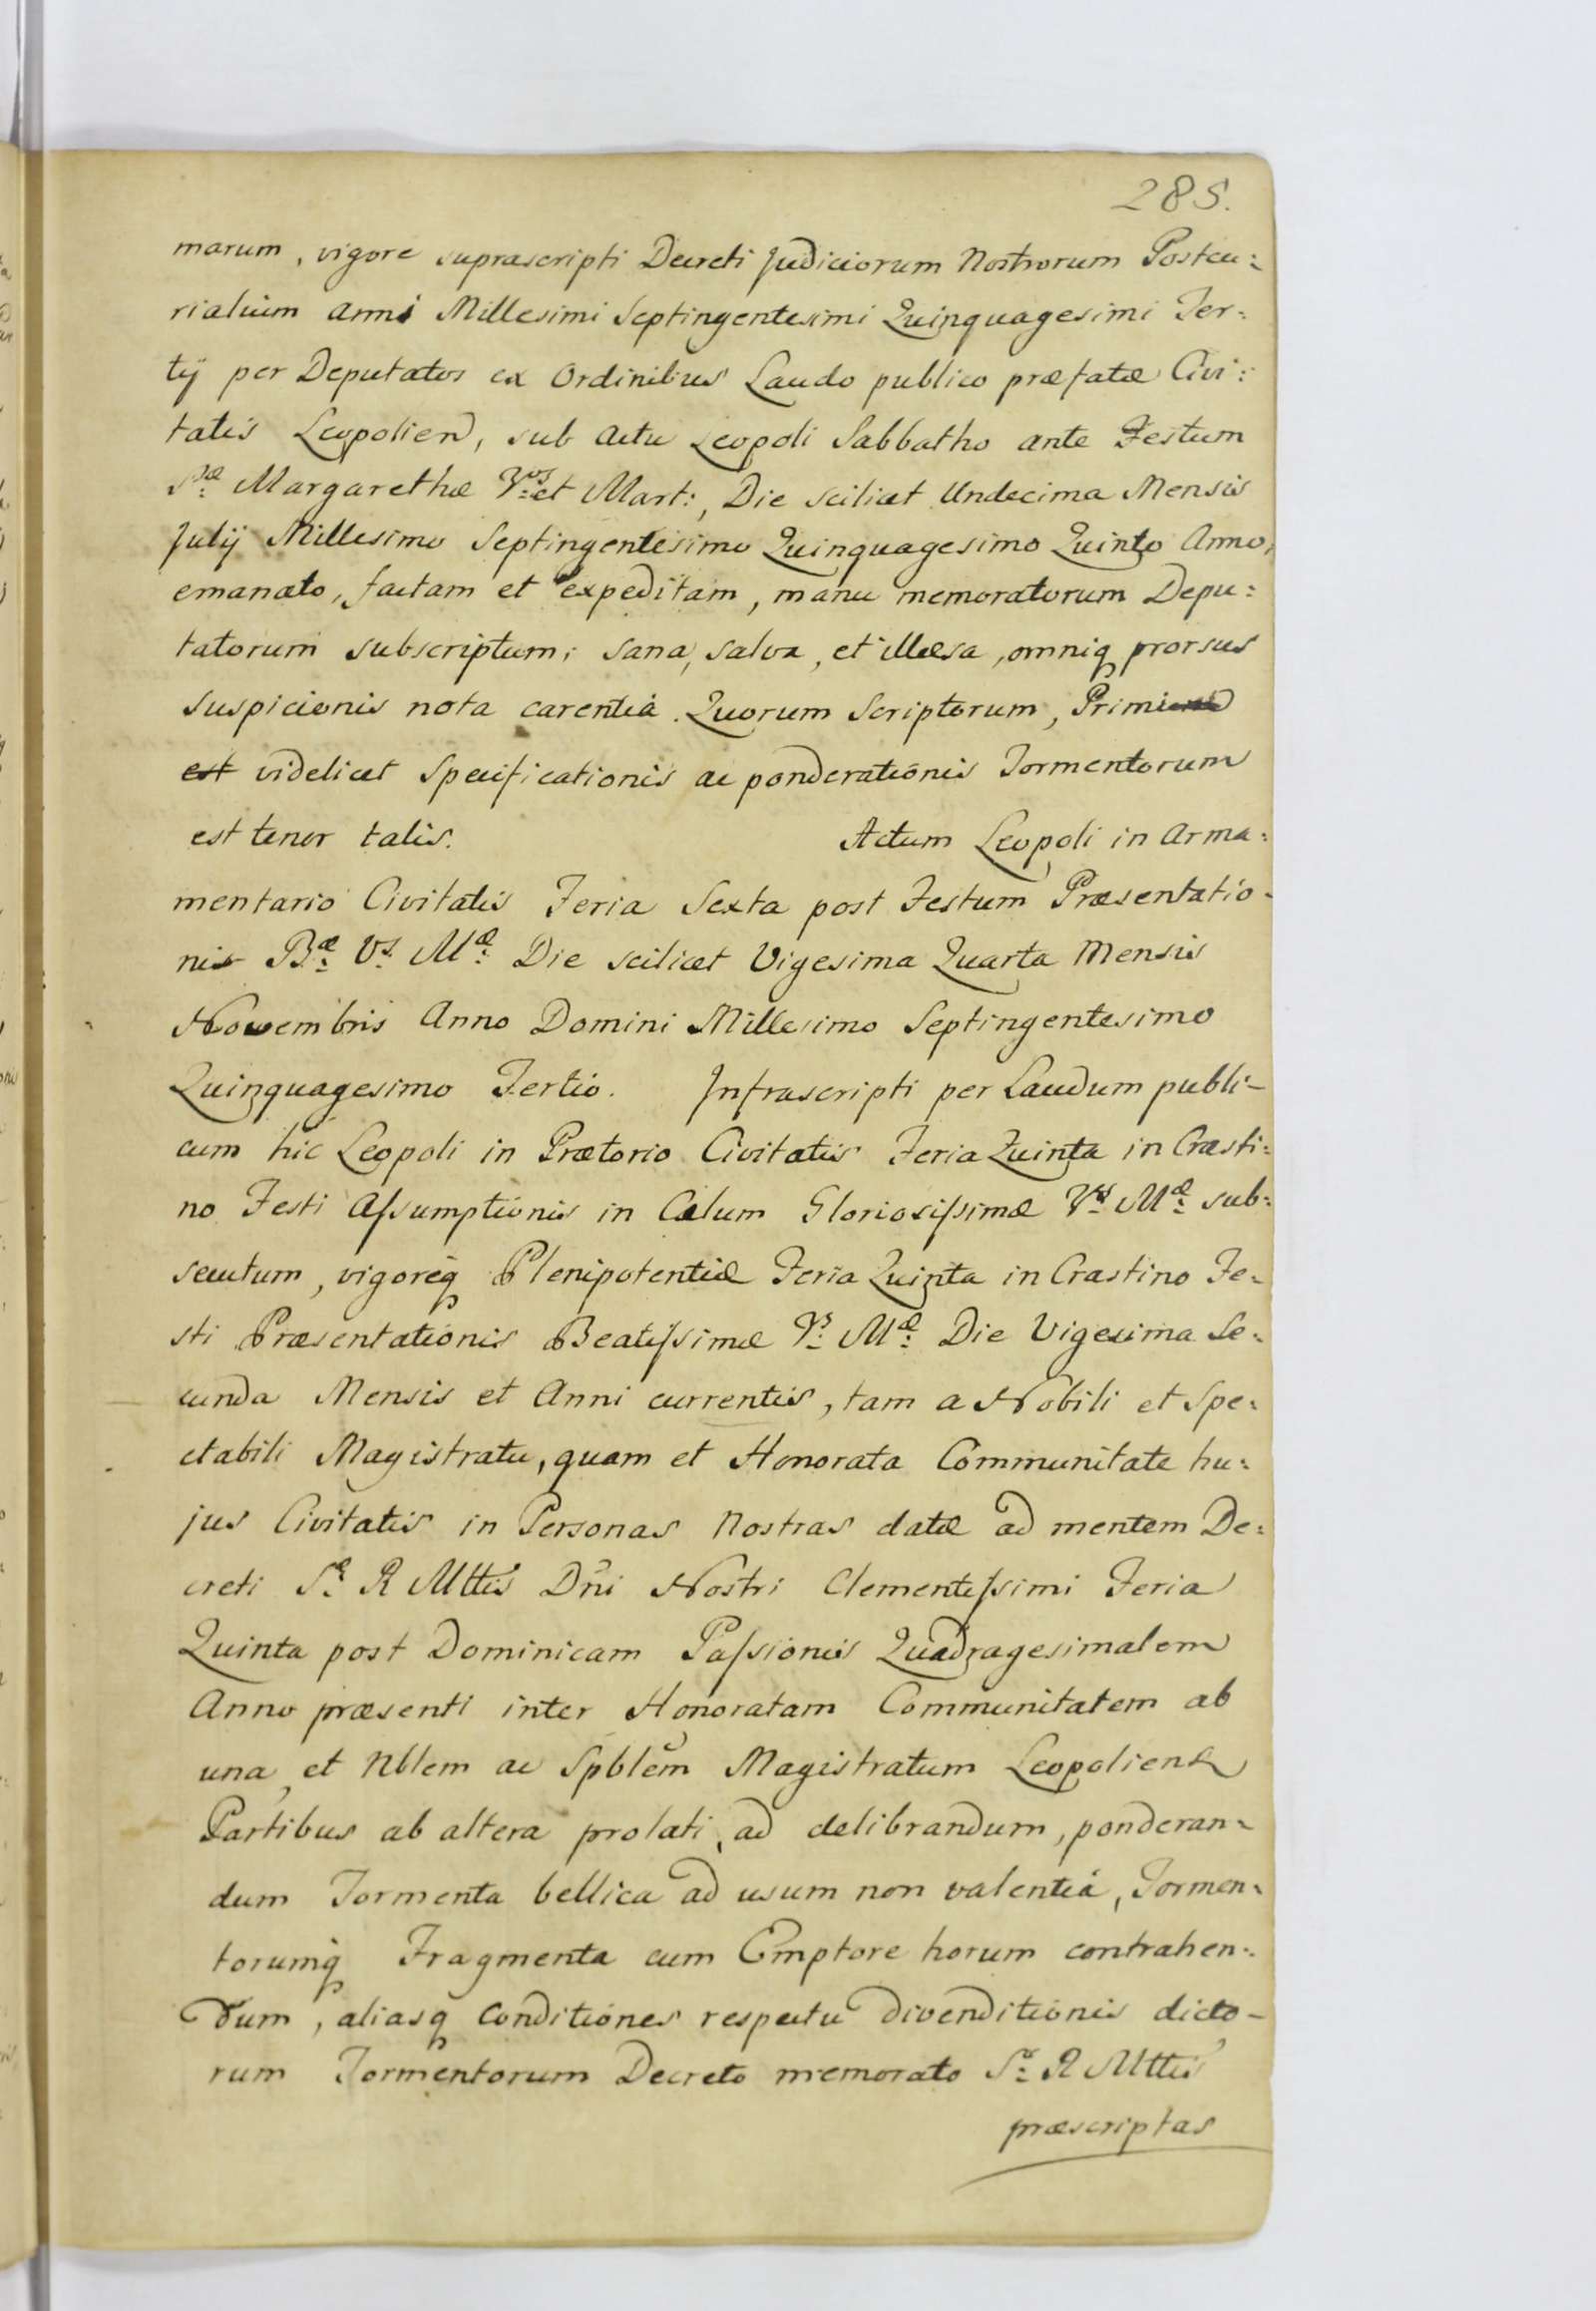 285.
marum, vigore suprascripti Decreti Judiciorum Nostrorum Postcu:
rialium anni Millesimi Septingentesimi Quinquagesimi Ter:
tij per Deputatos ex Ordinibus Laudo publico præfatæ Civi:
tatis Leopolien, sub actu Leopoli Sabbatho ante Festum
S:æ Margarethæ V:is et Mart:, Die scilicet Undecima Mensis
Julij Millesimo Septingentesimo Quinquagesimo Quinto Anno,
emanato, factam et expeditam, manu memoratorum Depu:
tatorum subscriptum; sana, salva, et illæsa, omniq prorsus
suspicionis nota carentia. Quorum Scriptorum, Primi
est videlicet Specificationis ac ponderationis Tormentorum
est tenor talis. Actum Leopoli in Arma:
mentario Civitatis Feria Sexta post Festum Præsentatio-
nis B:æ V:s M:æ Die scilicet Vigesima Quarta Mensis
Nowembris Anno Domini Millesimo Septingentesimo
Quinquagesimo Tertio. Infrascripti per Laudum publi-
cum hic Leopoli in Prætorio Civitatis Feria Quinta in Crasti:
no Festi Assumptionis in Cælum Gloriosissimæ V:s M:æ sub:
secutum, vigoreq Plenipotentiæ Feria Quinta in Crastino Fe-
sti Præsentationis Beatissimæ V:s M:æ Die Vigesima Se-
cunda Mensis et Anni currentis, tam a Nobili et Spe-
ctabili Magistratu, quam et Honorata Communitate hu-
jus Civitatis in Personas Nostras datæ ad mentem De:
creti S:æ R Mttis Dñi Nostri Clementissimi Feria
Quinta post Dominicam Passionis Quadragesimalem
Anno præsenti inter Honoratam Communitatem ab
una, et Nblem ac Spblem Magistratum Leopolien
Partibus ab altera prolati, ad delibrandum, ponderan-
dum Tormenta bellica ad usum non valentia, Tormen-
torumq Fragmenta cum Emptore horum contrahen-
dum, aliasq Conditiones respectu divenditionis dicto-
rum Tormentorum Decreto memorato S:æ R Mttis
præscriptas